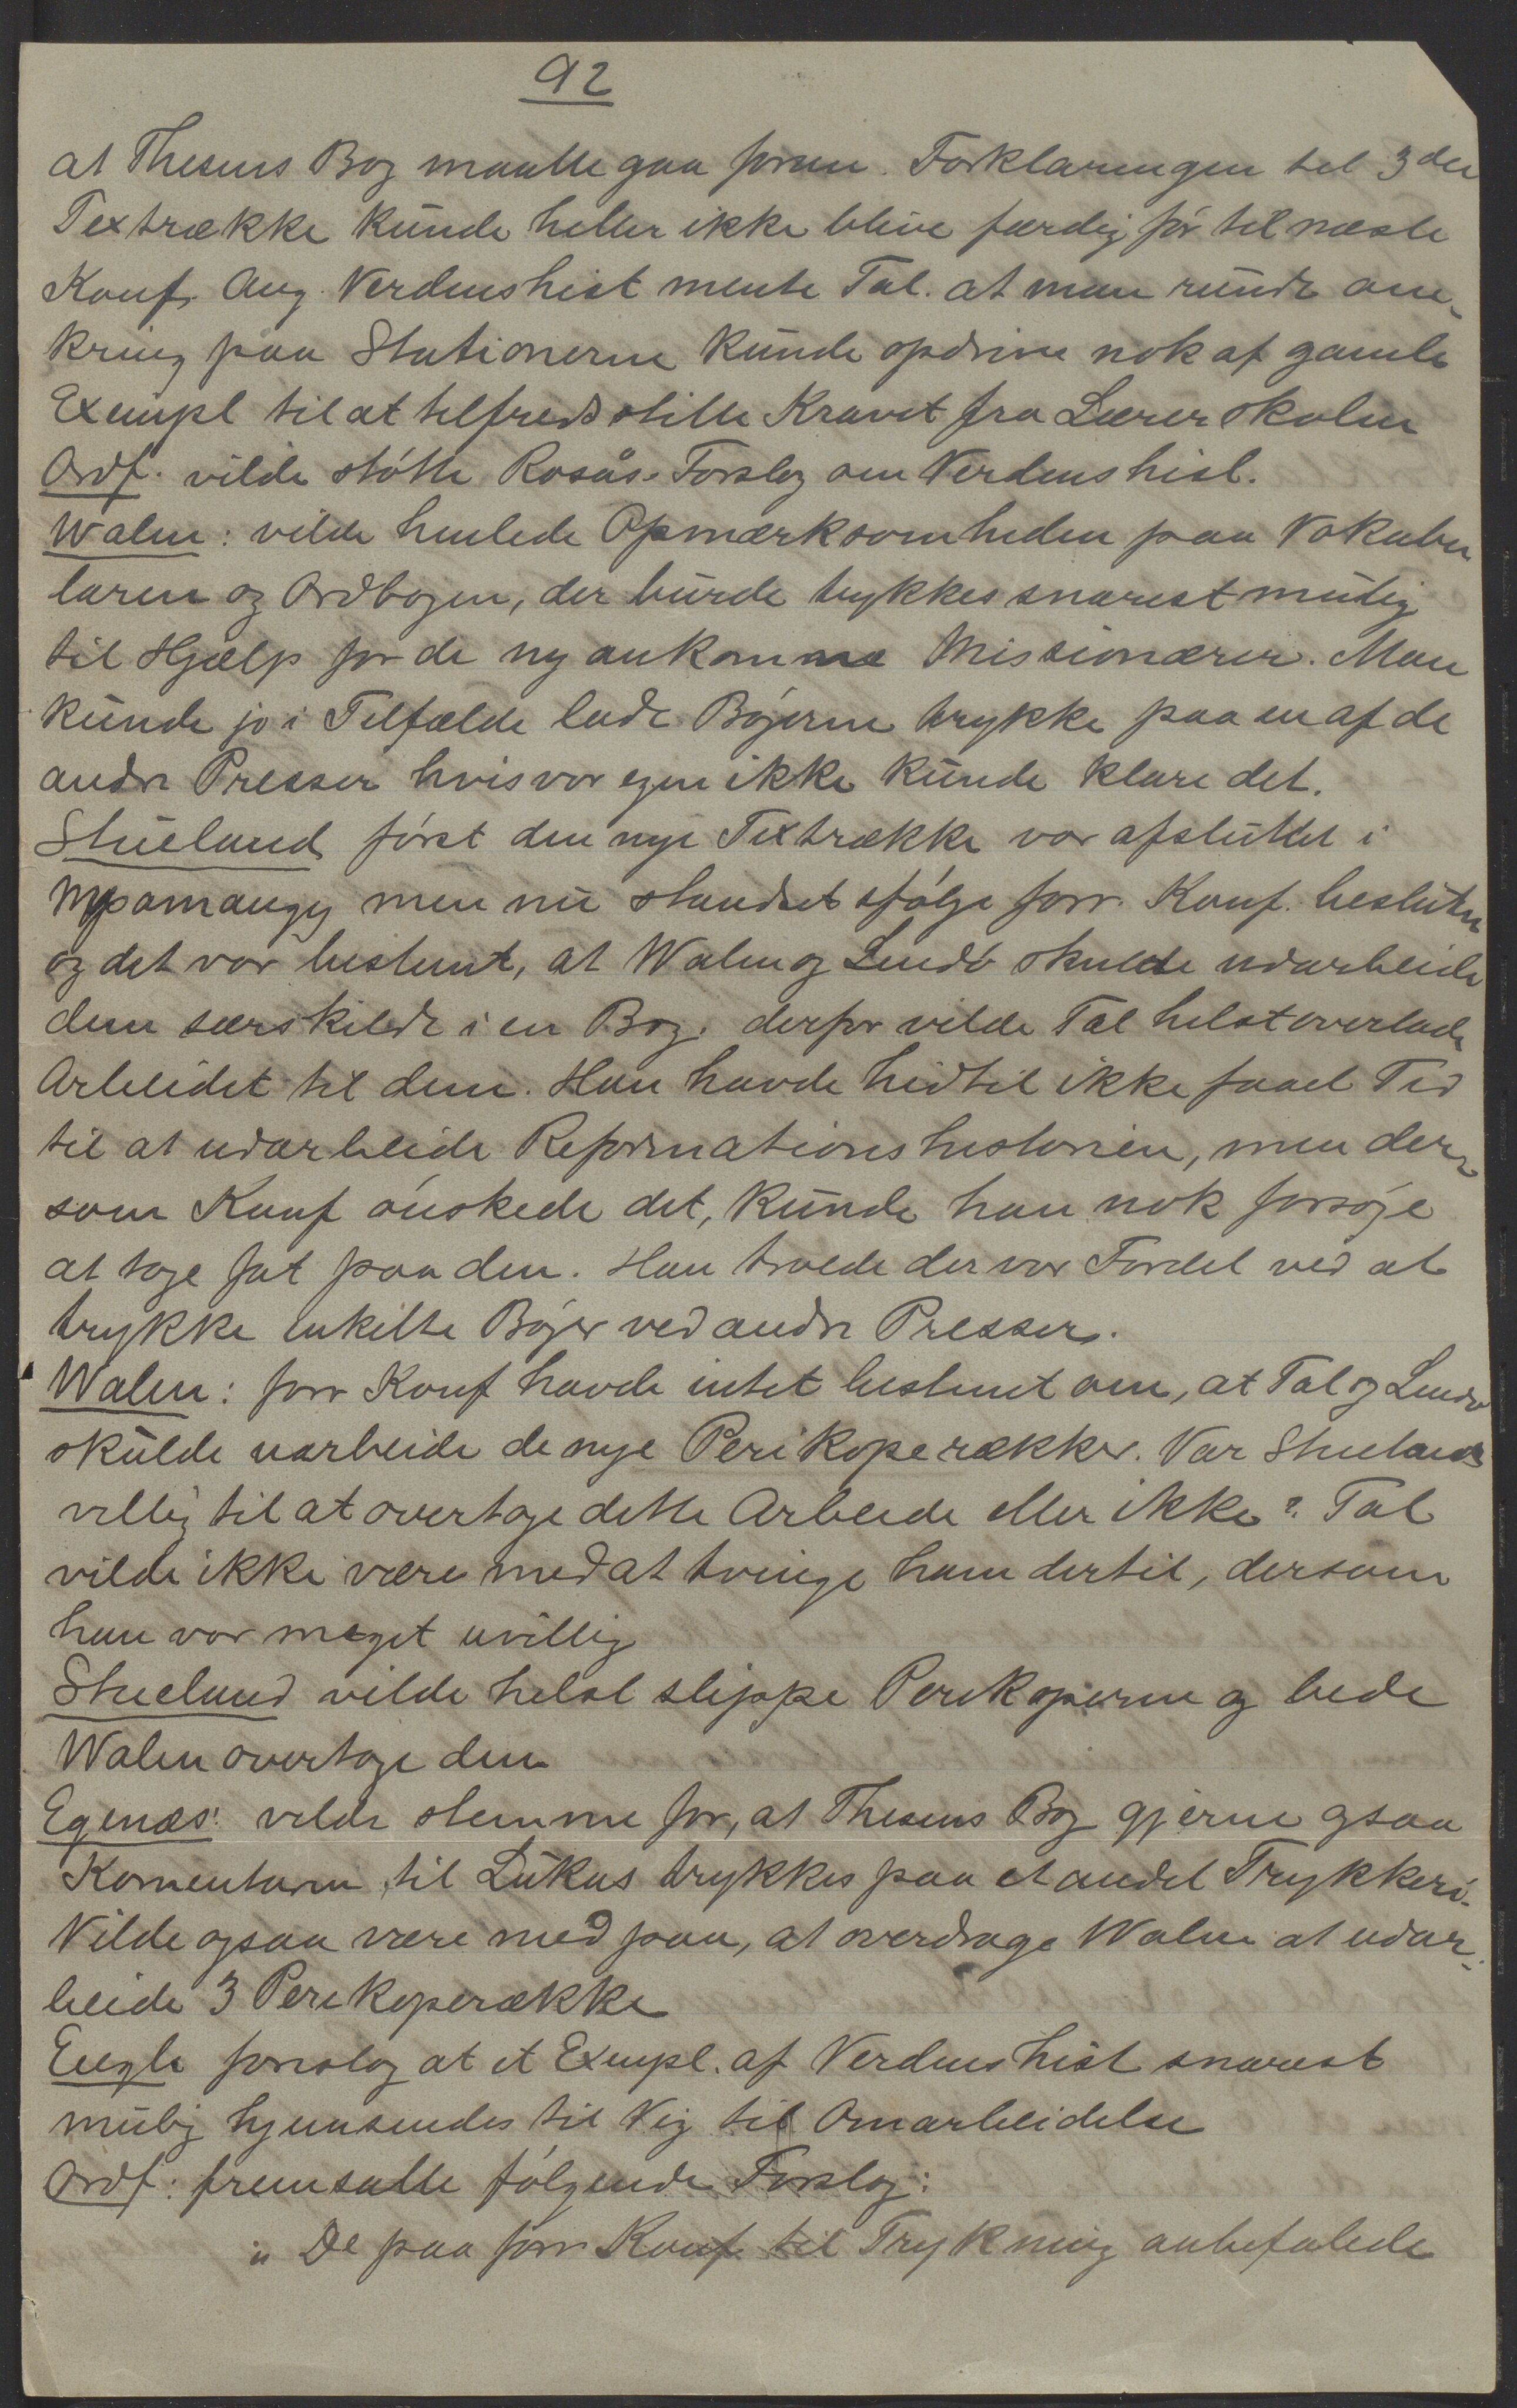 92
at Thesens Bog maatte gaa foran. Forklaringen til 3die
Textrække kunde heller ikke blive færdig før til næste
Konf. Ang. Verdenshist mente Tal. at man rundt om-
kring paa Stationerne kunde opdrive nok af gamle
Exempl til at tilfredsstille Kravet fra Lærerskolen
Ordf. vilde støtte Rosås. Forslag om Verdenshist.
Walen: vilde henlede Opmærksomheden paa Vokabu
laren og Ordbogen, der burde trykkes snarest mulig
til Hjælp for de nyankomne Missionærer. Man
kunde jo i Tilfælde lade Bøgerne trykke paa en af de
andre Presser hvis vor egen ikke kunde klare det.
Stueland først den nye Textrække var afsluttet i
Mpamangy men nu standset ifølge forr. Konf. beslutn
og det var bestemt, at Walen og Lindø skulde udarbeide
dem særskildt i en Bog. derfor vilde Tal helst overlade
Arbeidet til dem. Han havde hidtil ikke faaet Tid
til at udarbeide Reformationshistorien, men der-
som Konf ønskede det, kunde han nok forsøge
at tage fat paa den. Han troede der var Fordel ved at
trykke enkelte Bøger ved andre Presser.
Walen: forr Konf havde intet bestemt om, at Tal og Lindø
skulde uarbeide de nye Perikoperækker. Var Stueland
villig til at overtage dette Arbeide eller ikke? Tal
vilde ikke være med at tvinge ham dertil, dersom
han var meget uvillig
Stueland vilde helst slippe Perikoperne og bede
Walen overtage dem
Egenæs: vilde stemme for, at Thesens Bog gjerne ogsaa
Komentaren til Lukas trykkes paa et andet Trykkeri.
Vilde ogsaa være med paa, at overdrage Walen at udar-
beide 3 Perikoperække
Engh foreslog at et Exempl. af Verdenshist snarest
mulig hjemsendes til Vig til Omarbeidelse
Ordf: fremsatte følgende Forslag:
"De paa forr Konf til Trykning anbefalede